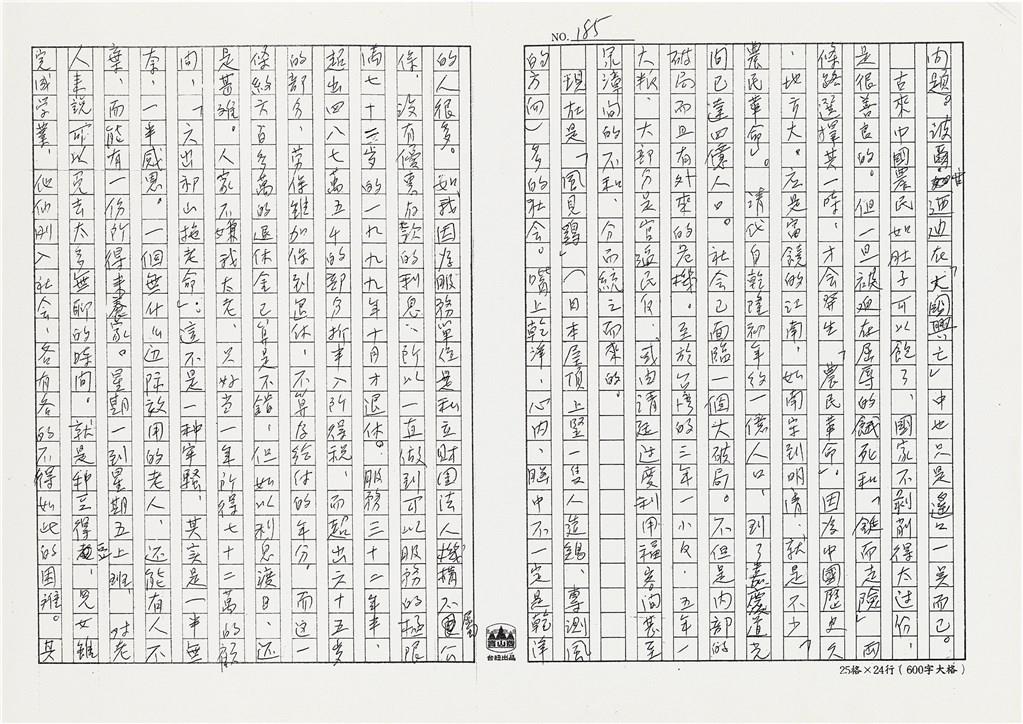 NO. 185
問題。波爾如迺迪在「大國興亡」中也只是逢口一吳而已。
古來中國農民如肚子可以飽了、國家不剝削得太过份、
是很善良的。但一旦被迫在屈辱的餓死和「鋌而走險」兩
條路選擇其一時、才会發生「農民革命」。因為中國歷史久
、地方大。尤是富饒的江南、如南宋到明清、就是不少「
農民革命」。清代自乾隆初年約一億人口、到了嘉慶道光
间已達四億人口。社会已面臨一個大破局。不但是内部的
破局而且有外來的危機。至於台湾的三年一小反、五年一
大叛、大部分是官逼民反、或由清廷过度利用福客间甚至
泉漳间的不和、分而統之而來的。
現在是「風見鷄」(日本屋頂上竪一隻人造鷄、專測風
的方向)多的社会。嘴上乾淨、心内、腦中不一定是乾淨
的人很多。如我因為服務單位是私立財団法人機構不屬公
保、沒有優惠存款的利息、所以一直做到可以服務的極限
満七十三岁的一九九九年十月才退休。服務三十二年半、
超出四八七萬五千的部分折半入所得税、而超出六十五岁
的部分、劳保雖加保到退休、不算存給付的年分。而这一
條約六百多萬的退休金已算是不錯、但如以利息渡日、还
是甚難。人家不嫌我太老、只好当一年所得七十二萬的顧
问、「六出祁山拖老命」。這不是一种牢騷、其实是一半無
奈、一半感恩。一個無什么边际效用的老人、还能有人不
棄、而能有一份所得來養家。星期一到星期五上班、对老
人來説可以免去太多無聊的時间。就是种豆得豆、兒女雖
完成学業、他们刚入社会、各有各的不得如此的困難。其
25格×24行(600字大格)
台經出品